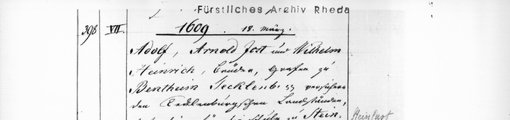 Fürstliches Archiv Rheda
396 VII. 1609. 18. März.
Adolf, Arnold Jost und Wilhelm
Heinrich, Brüder, Grafen zu
Bentheim Tecklenb: verſichern
den Tecklenburgschen Landständen,
Stein-